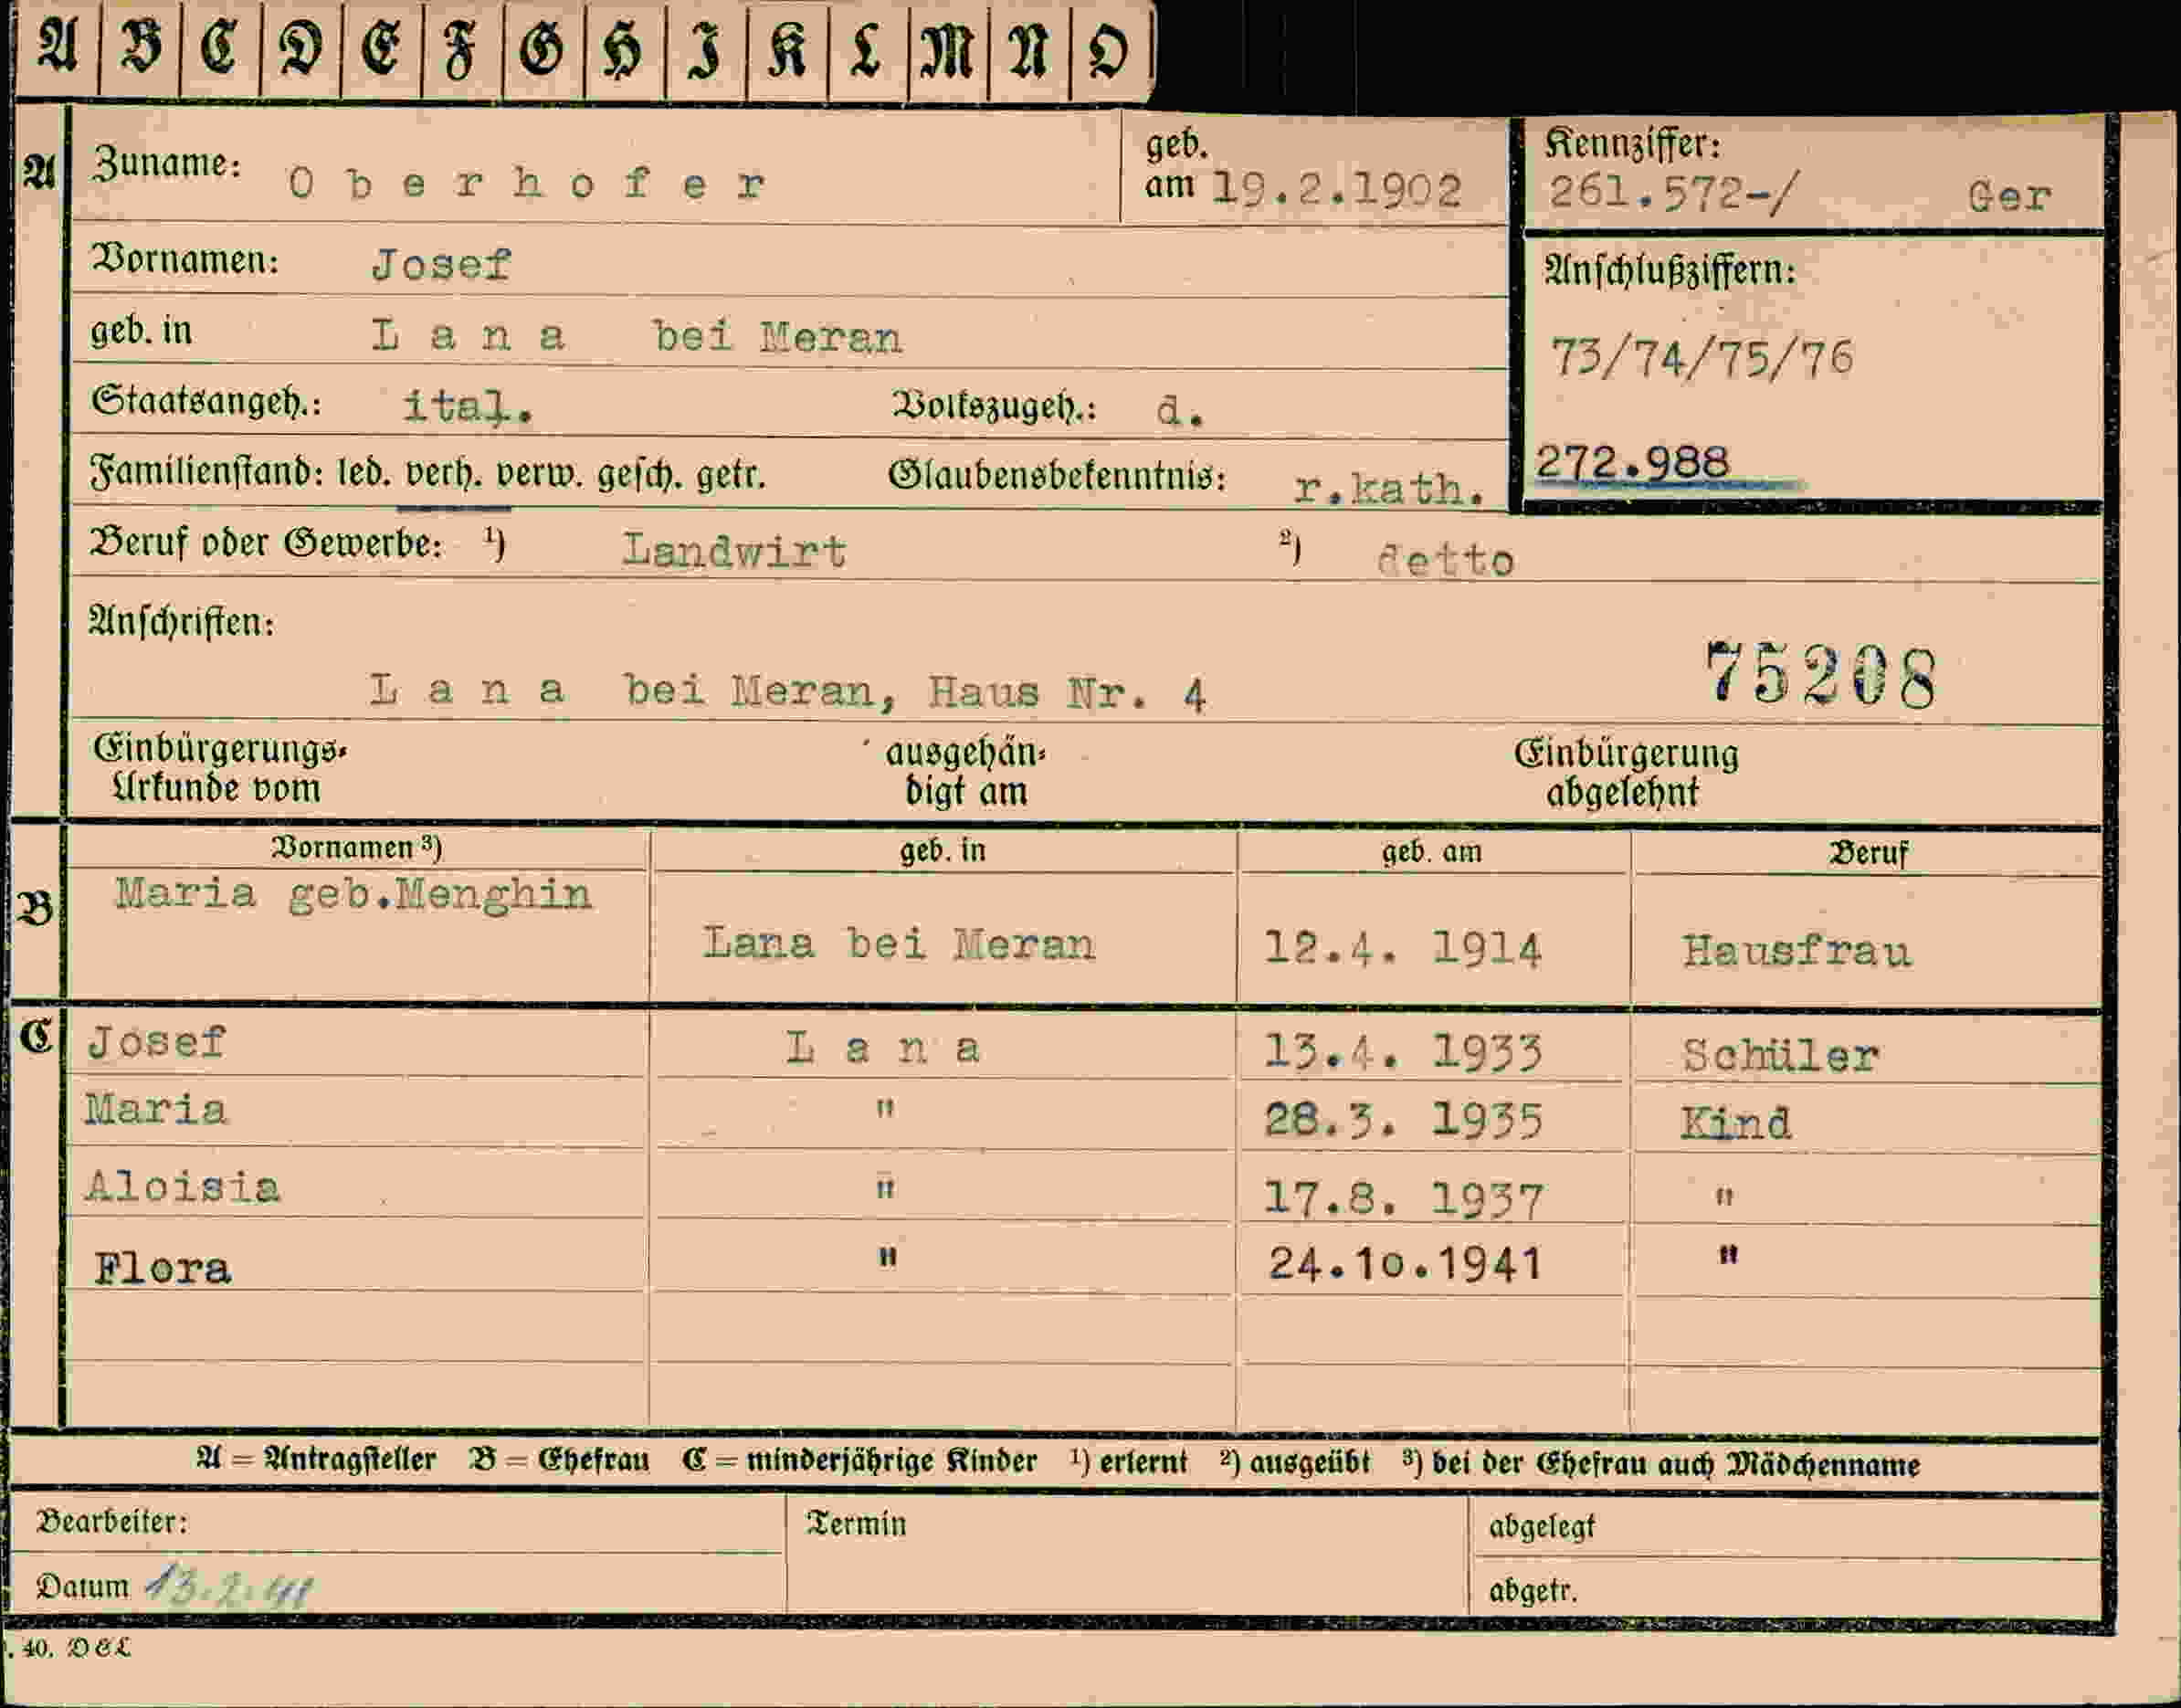 A B C D E F G H I K L M N O
A Zuname: Oberhofer geb. am 19.2.1902
Kennziffer: 261.572-/ Ger
Vornamen: Josef
Anschlußziffern:
geb. in Lana bei Meran
73/74/75/76
Staatsangeh.: ital. Volkszugeh.: d.
Familienstand: led. verh. verw. gesch. getr. Glaubensbekenntnis: r.kath.
272.988
Beruf oder Gewerbe: 1) Landwirt 2) detto
Anschriften:
75208
Lana bei Meran, Haus Nr. 4
Einbürgerungs- ausgehän- Einbürgerung
Urkunde vom digt am abgelehnt
Vornamen 3) geb. in geb. am Beruf
B Maria geb.Menghin
Lana bei Meran 12.4. 1914 Hausfrau
C Josef Lana 13.4. 1933 Schüler
Maria " 28.3. 1935 Kind
Aloisia " 17.8. 1937 "
Flora " 24.10.1941 "
A = Antragsteller B = Ehefrau C = minderjährige Kinder 1) erlernt 2) ausgeübt 3) bei der Ehefrau auch Mädchenname
Bearbeiter: Termin abgelegt
Datum 13.2.41 abgetr.
. 40. DEL